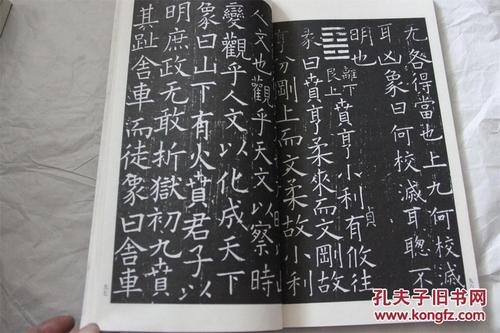 无咎得當也上九何校滅
耳凶象曰何校滅耳聰不
明也
離下
艮上
賁亨小利有攸往
貞
彖曰賁亨柔來而文剛故
亨分剛上而文柔故小利
人文也觀乎天文以察時
變觀乎人文以化成天下
象曰山下有火賁君子以
明庶政无敢折獄初九賁
其趾舍車而徒象曰舍車
九七
孔夫子旧书网
www.kongfz.com